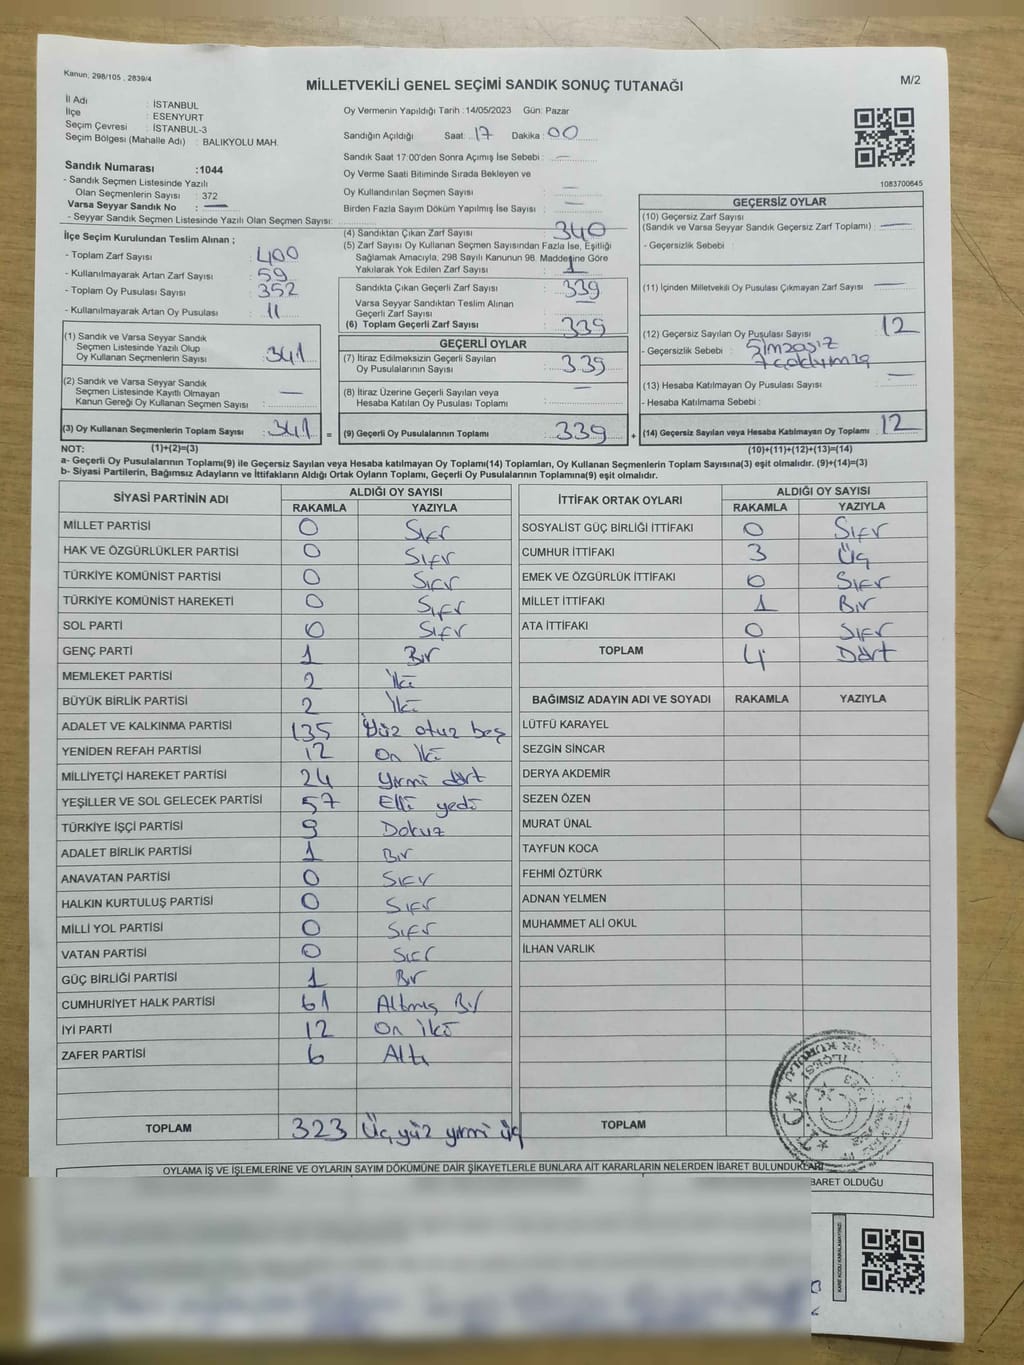 Kanun, 298/105 , 2839/4
MİLLETVEKİLİ GENEL SEÇİMİ SANDIK SONUÇ TUTANAĞI
M/2
İl Adı : İSTANBUL
İlçe : ESENYURT
Seçim Çevresi : İSTANBUL-3
Seçim Bölgesi (Mahalle Adı) : BALIKYOLU MAH.
Sandık Numarası :1044
- Sandık Seçmen Listesinde Yazılı
Olan Seçmenlerin Sayısı : 372
Varsa Seyyar Sandık No : —
- Seyyar Sandık Seçmen Listesinde Yazılı Olan Seçmen Sayısı:
Oy Vermenin Yapıldığı Tarih :14/05/2023 Gün: Pazar
Sandığın Açıldığı Saat: 17 Dakika : 00
Sandık Saat 17:00'den Sonra Açımış İse Sebebi : —
Oy Verme Saati Bitiminde Sırada Bekleyen ve
Oy Kullandırılan Seçmen Sayısı : —
Birden Fazla Sayım Döküm Yapılmış İse Sayısı : —
1083700645
İlçe Seçim Kurulundan Teslim Alınan ;
- Toplam Zarf Sayısı : 400
- Kullanılmayarak Artan Zarf Sayısı : 59
- Toplam Oy Pusulası Sayısı : 352
- Kullanılmayarak Artan Oy Pusulası : 11
(1) Sandık ve Varsa Seyyar Sandık
Seçmen Listesinde Yazılı Olup
Oy Kullanan Seçmenlerin Sayısı : 341
(2) Sandık ve Varsa Seyyar Sandık
Seçmen Listesinde Kayıtlı Olmayan
Kanun Gereği Oy Kullanan Seçmen Sayısı : —
(3) Oy Kullanan Seçmenlerin Toplam Sayısı : 341 =
(4) Sandıktan Çıkan Zarf Sayısı : 340
(5) Zarf Sayısı Oy Kullanan Seçmen Sayısından Fazla İse, Eşitliği
Sağlamak Amacıyla, 298 Sayılı Kanunun 98. Maddesine Göre
Yakılarak Yok Edilen Zarf Sayısı : 1
Sandıkta Çıkan Geçerli Zarf Sayısı : 339
Varsa Seyyar Sandıktan Teslim Alınan
Geçerli Zarf Sayısı : —
(6) Toplam Geçerli Zarf Sayısı : 339
GEÇERLİ OYLAR
(7) İtiraz Edilmeksizin Geçerli Sayılan
Oy Pusulalarının Sayısı : 339
(8) İtiraz Üzerine Geçerli Sayılan veya
Hesaba Katılan Oy Pusulası Toplamı : —
(9) Geçerli Oy Pusulalarının Toplamı : 339 +
GEÇERSİZ OYLAR
(10) Geçersiz Zarf Sayısı
(Sandık ve Varsa Seyyar Sandık Geçersiz Zarf Toplamı) : —
- Geçersizlik Sebebi :
(11) İçinden Milletvekili Oy Pusulası Çıkmayan Zarf Sayısı : —
(12) Geçersiz Sayılan Oy Pusulası Sayısı : 12
- Geçersizlik Sebebi :
(13) Hesaba Katılmayan Oy Pusulası Sayısı : —
- Hesaba Katılmama Sebebi :
(14) Geçersiz Sayılan veya Hesaba Katılmayan Oy Toplamı : 12
NOT: (1)+(2)=(3) (10)+(11)+(12)+(13)=(14)
a- Geçerli Oy Pusulalarının Toplamı(9) ile Geçersiz Sayılan veya Hesaba katılmayan Oy Toplamı(14) Toplamları, Oy Kullanan Seçmenlerin Toplam Sayısına(3) eşit olmalıdır. (9)+(14)=(3)
b- Siyasi Partilerin, Bağımsız Adayların ve İttifakların Aldığı Ortak Oyların Toplamı, Geçerli Oy Pusulalarının Toplamına(9) eşit olmalıdır.
SİYASİ PARTİNİN ADI ALDIĞI OY SAYISI
RAKAMLA YAZIYLA
MİLLET PARTİSİ 0 Sıfır
HAK VE ÖZGÜRLÜKLER PARTİSİ 0 Sıfır
TÜRKİYE KOMÜNİST PARTİSİ 0 Sıfır
TÜRKİYE KOMÜNİST HAREKETİ 0 Sıfır
SOL PARTİ 0 Sıfır
GENÇ PARTİ 1 Bir
MEMLEKET PARTİSİ 2 İki
BÜYÜK BİRLİK PARTİSİ 2 İki
ADALET VE KALKINMA PARTİSİ 135 Yüz otuz beş
YENİDEN REFAH PARTİSİ 12 On İki
MİLLİYETÇİ HAREKET PARTİSİ 24 Yirmi dört
YEŞİLLER VE SOL GELECEK PARTİSİ 57 Elli yedi
TÜRKİYE İŞÇİ PARTİSİ 9 Dokuz
ADALET BİRLİK PARTİSİ 1 Bir
ANAVATAN PARTİSİ 0 Sıfır
HALKIN KURTULUŞ PARTİSİ 0 Sıfır
MİLLİ YOL PARTİSİ 0 Sıfır
VATAN PARTİSİ 0 Sıfır
GÜÇ BİRLİĞİ PARTİSİ 1 Bir
CUMHURİYET HALK PARTİSİ 61 Altmış Bir
İYİ PARTİ 12 On İki
ZAFER PARTİSİ 6 Altı
TOPLAM 323 Üç yüz yirmi üç
İTTİFAK ORTAK OYLARI ALDIĞI OY SAYISI
RAKAMLA YAZIYLA
SOSYALİST GÜÇ BİRLİĞİ İTTİFAKI 0 Sıfır
CUMHUR İTTİFAKI 3 Üç
EMEK VE ÖZGÜRLÜK İTTİFAKI 0 Sıfır
MİLLET İTTİFAKI 1 Bir
ATA İTTİFAKI 0 Sıfır
TOPLAM 4 Dört
BAĞIMSIZ ADAYIN ADI VE SOYADI RAKAMLA YAZIYLA
LÜTFÜ KARAYEL
SEZGİN SİNCAR
DERYA AKDEMİR
SEZEN ÖZEN
MURAT ÜNAL
TAYFUN KOCA
FEHMİ ÖZTÜRK
ADNAN YELMEN
MUHAMMET ALİ OKUL
İLHAN VARLIK
TOPLAM
OYLAMA İŞ VE İŞLEMLERİNE VE OYLARIN SAYIM DÖKÜMÜNE DAİR ŞİKAYETLERLE BUNLARA AİT KARARLARIN NELERDEN İBARET BULUNDUKLARI
BARET OLDUĞU